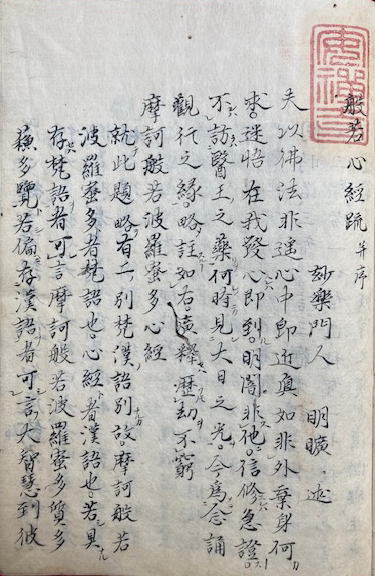 般若心経疏 并序
妙樂門人 明曠 述
夫以佛法非遥心中即近真如非外棄身何
求迷悟在我發心即到明闇非他信修忽證
不訪醫王之藥何時見大日之光今為念誦
觀行之縁略註如右廣釋歴劫不窮
摩訶般若波羅蜜多心経
就此題略有二別梵漢語別故摩訶般若
波羅蜜多者梵語也心経者漢語也若具
存梵語者可言摩訶般若波羅蜜多質多
蘓多覽若偏存漢語者可言大智慧到彼